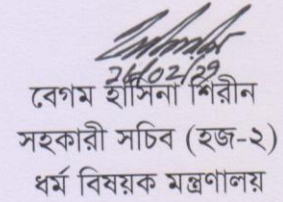 বেগম হাসিনা শিরীন
সহকারী সচিব (হজ-২)
ধর্ম বিষয়ক মন্ত্রণালয়